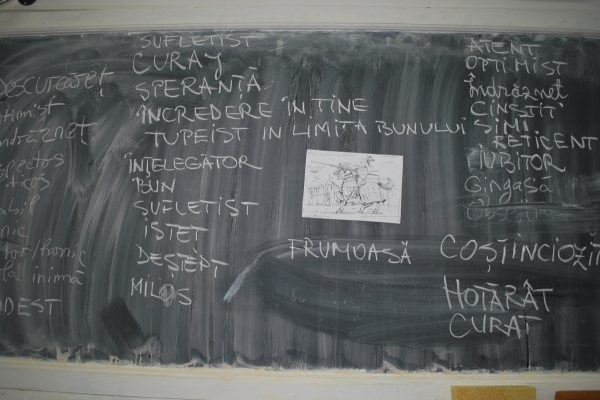 DESCURCĂREȚ
îndrăzneț
inimă
SUFLETIST
CURAJ
SPERANȚĂ
ÎNCREDERE ÎN TINE
TUPEIST IN LIMITA BUNULUI SIMȚ
ÎNȚELEGĂTOR
BUN
SUFLETIST
ISTEȚ
DEȘTEPT
MILOS
FRUMOASĂ
ATENT
OPTIMIST
Îndrăzneț
CINSTIT
RETICENT
IUBITOR
Gingasă
COȘTIINCIOZIT
HOTĂRÂT
CURAT